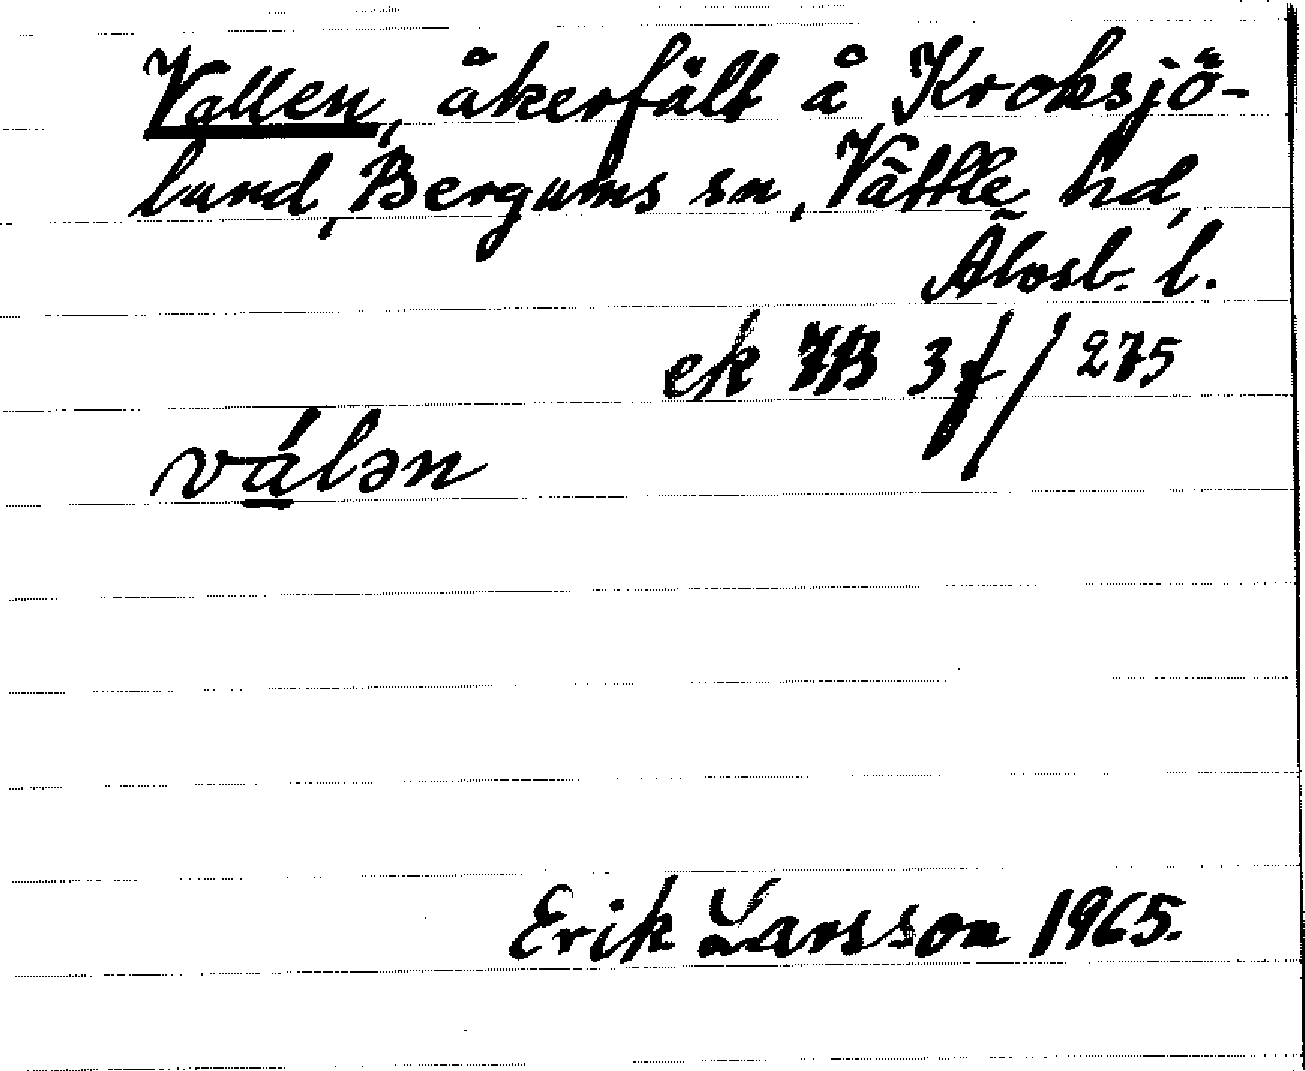 Vallen, åkerfält å Kroksjö-
lund, Bergums sn, Vättle hd,
Älvsb. l.
ek 7B 3f/275
vá̱lən
Erik Larsson 1965.